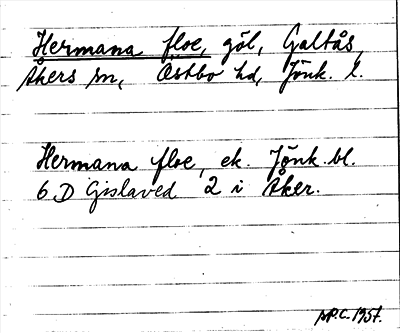 Hermana floe, göl, Galtås,
Åkers sn, Östbo hd, Jönk. l.
Hermana floe, ek. Jönk. bl.
6 D Gislaved 2 i Åker.
1957.